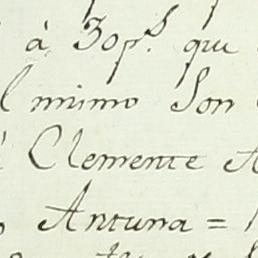 à 30ps. que
l mimo Son
Clemente A
Antuna =